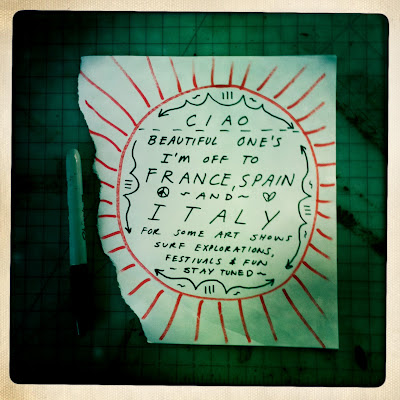 CIAO
BEAUTIFUL ONE'S
I'M OFF TO
FRANCE, SPAIN
~AND~
ITALY
FOR SOME ART SHOWS
SURF EXPLORATIONS,
FESTIVALS & FUN
- STAY TUNED ~